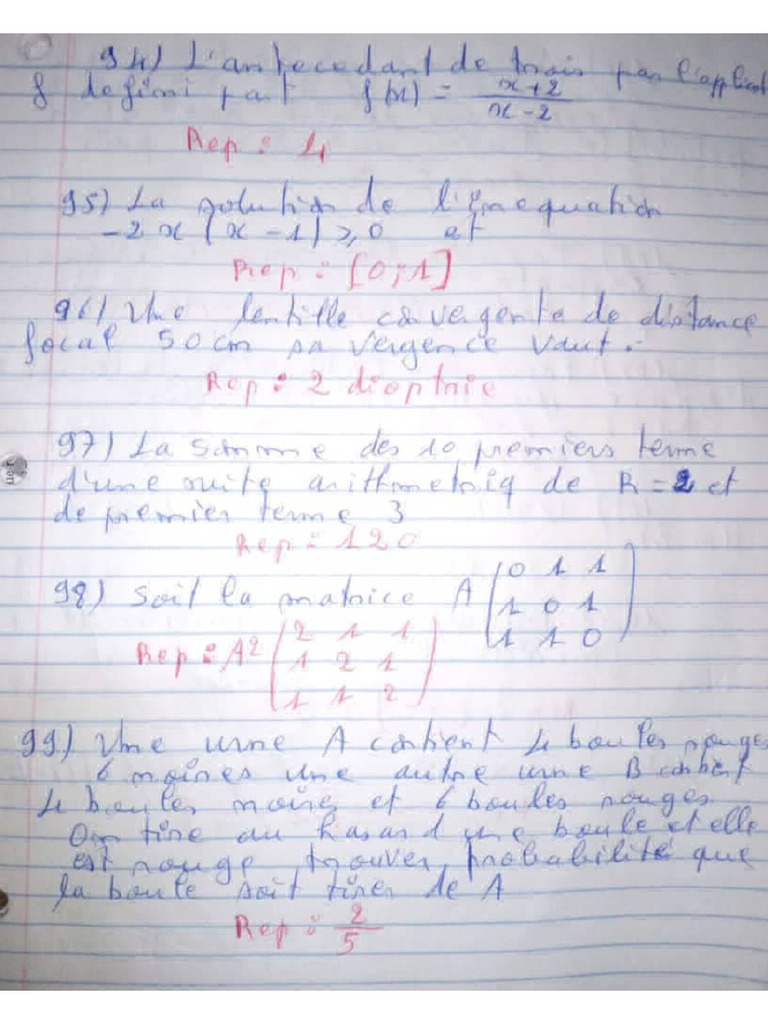 94) L'antecedant de trois par l'applicat
f defini part f(x) = \frac{x+2}{x-2}
Rep : 4
95) La solution de l'inequation
-2x(x-1) ≥ 0 et
Rep : [0;1]
96) Une lentille convergente de distance
focal 50cm sa vergence vaut.
Rep : 2 dioptrie
97) La somme des 10 premiers terme
d'une suite arithmetriq de R = 2 et
de premier terme 3
Rep : 120
98) Soit la matrice A \begin{pmatrix} 0 & 1 & 1 \\ 1 & 0 & 1 \\ 1 & 1 & 0 \end{pmatrix}
Rep : A² \begin{pmatrix} 2 & 1 & 1 \\ 1 & 2 & 1 \\ 1 & 1 & 2 \end{pmatrix}
99) Une urne A contient 4 boules rouges
6 noires une autre urne B contient
4 boules noires et 6 boules rouges
On tire au hasard une boule et elle
est rouge trouver probabilité que
la boule soit tirer de A
Rep : \frac{2}{5}